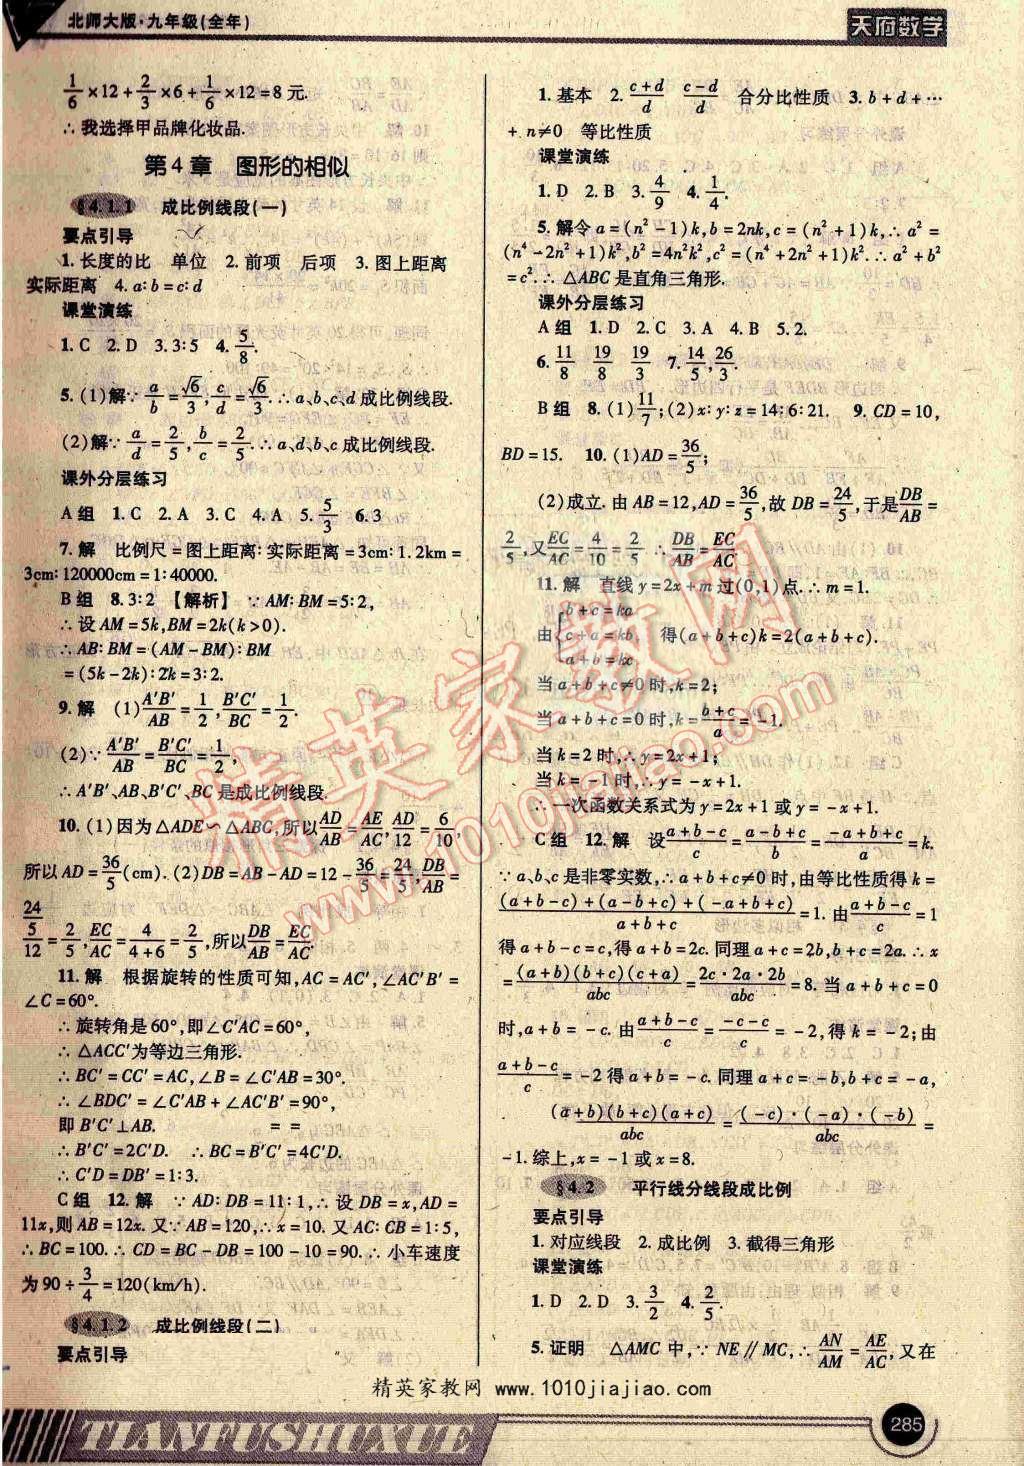 北师大版·九年级(全年)
天府数学
1/6×12+2/3×6+1/6×12=8元.
∴我选择甲品牌化妆品.
第4章 图形的相似
§4.1.1 成比例线段(一)
要点引导
1.长度的比 单位 2.前项 后项 3.图上距离
实际距离 4.a∶b=c∶d
课堂演练
1.C 2.D 3.3∶5 4.5/8.
5.(1)解∵a/b=√6/3,c/d=√6/3.∴a、b、c、d成比例线段.
(2)解∵a/d=2/5,b/c=2/5.∴a、d、b、c成比例线段.
课外分层练习
A组 1.C 2.A 3.C 4.A 5.5/3 6.3
7.解 比例尺=图上距离∶实际距离=3cm∶1.2km=
3cm∶120000cm=1∶40000.
B组 8.3∶2 【解析】∵AM∶BM=5∶2,
∴设AM=5k,BM=2k(k>0).
∴AB∶BM=(AM-BM)∶BM
=(5k-2k)∶2k=3∶2.
9.解 (1)A′B′/AB=1/2,B′C′/BC=1/2.
(2)∵A′B′/AB=B′C′/BC=1/2,
∴A′B′、AB、B′C′、BC是成比例线段.
10.(1)因为△ADE∽△ABC,所以AD/AB=AE/AC,AD/12=6/10,
所以AD=36/5(cm).(2)DB=AB-AD=12-36/5=24/5,DB/AB=
(24/5)/12=2/5,EC/AC=4/(4+6)=2/5,所以DB/AB=EC/AC.
11.解 根据旋转的性质可知,AC=AC′,∠AC′B′=
∠C=60°.
∴旋转角是60°,即∠C′AC=60°,
∴△ACC′为等边三角形.
∴BC′=CC′=AC,∠B=∠C′AB=30°.
∴∠BDC′=∠C′AB+∠AC′B′=90°,
即B′C′⊥AB.
∴B′C′=2C′D.∴BC=B′C′=4C′D.
∴C′D=DB′=1∶3.
C组 12.解 ∵AD∶DB=11∶1,∴设DB=x,AD=
11x,则AB=12x.又∵AB=120,∴x=10.又AC∶CB=1∶5,
∴BC=100.∴CD=BC-DB=100-10=90.∴小车速度
为90÷3/4=120(km/h).
§4.1.2 成比例线段(二)
要点引导
1.基本 2.(c+d)/d (c-d)/d 合分比性质 3.b+d+…
+n≠0 等比性质
课堂演练
1.D 2.B 3.4/9 4.1/4.
5.解令a=(n²-1)k,b=2nk,c=(n²+1)k,∴a²=
(n⁴-2n²+1)k²,b²=4n²k²,c²=(n⁴+2n²+1)k².∴a²+b²
=c².∴△ABC是直角三角形.
课外分层练习
A组 1.D 2.C 3.A 4.B 5.2.
6.11/8 19/8 19/3 7.14/5,26/3.
B组 8.(1)11/7;(2)x∶y∶z=14∶6∶21. 9.CD=10,
BD=15. 10.(1)AD=36/5;
(2)成立.由AB=12,AD=36/5,故DB=24/5,于是DB/AB=
2/5,又EC/AC=4/10=2/5 ∴DB/AB=EC/AC
11.解 直线y=2x+m过(0,1)点.∴m=1.
由{b+c=ka c+a=kb, a+b=kc 得(a+b+c)k=2(a+b+c).
当a+b+c≠0时,k=2;
当a+b+c=0时,k=(b+c)/a=-1.
当k=2时,∴y=2x+1;
当k=-1时,∴y=-x+1.
∴一次函数关系式为y=2x+1或y=-x+1.
C组 12.解 设(a+b-c)/c=(a-b+c)/b=(-a+b+c)/a=k.
∵a、b、c是非零实数,∴a+b+c≠0时,由等比性质得k=
((a+b-c)+(a-b+c)+(-a+b+c))/(a+b+c)=1.由(a+b-c)/c=1
得a+b-c=c,得a+b=2c.同理a+c=2b,b+c=2a.∴x
=(a+b)(b+c)(c+a)/abc=2c·2a·2b/abc=8.当a+b+c=0
时,a+b=-c.由(a+b-c)/c=(-c-c)/c=-2,得k=-2;由
(a+b-c)/c=-2得a+b=-c.同理a+c=-b,b+c=-a,
(a+b)(b+c)(a+c)/abc=(-c)·(-a)·(-b)/abc=
-1.综上,x=-1或x=8.
§4.2 平行线分线段成比例
要点引导
1.对应线段 2.成比例 3.截得三角形
课堂演练
1.D 2.D 3.3/2 4.2/5.
5.证明 △AMC中,∵NE∥MC,∴AN/AM=AE/AC,又在
精英家教网 www.1010jiajiao.com
TIANFUSHUXUE
285